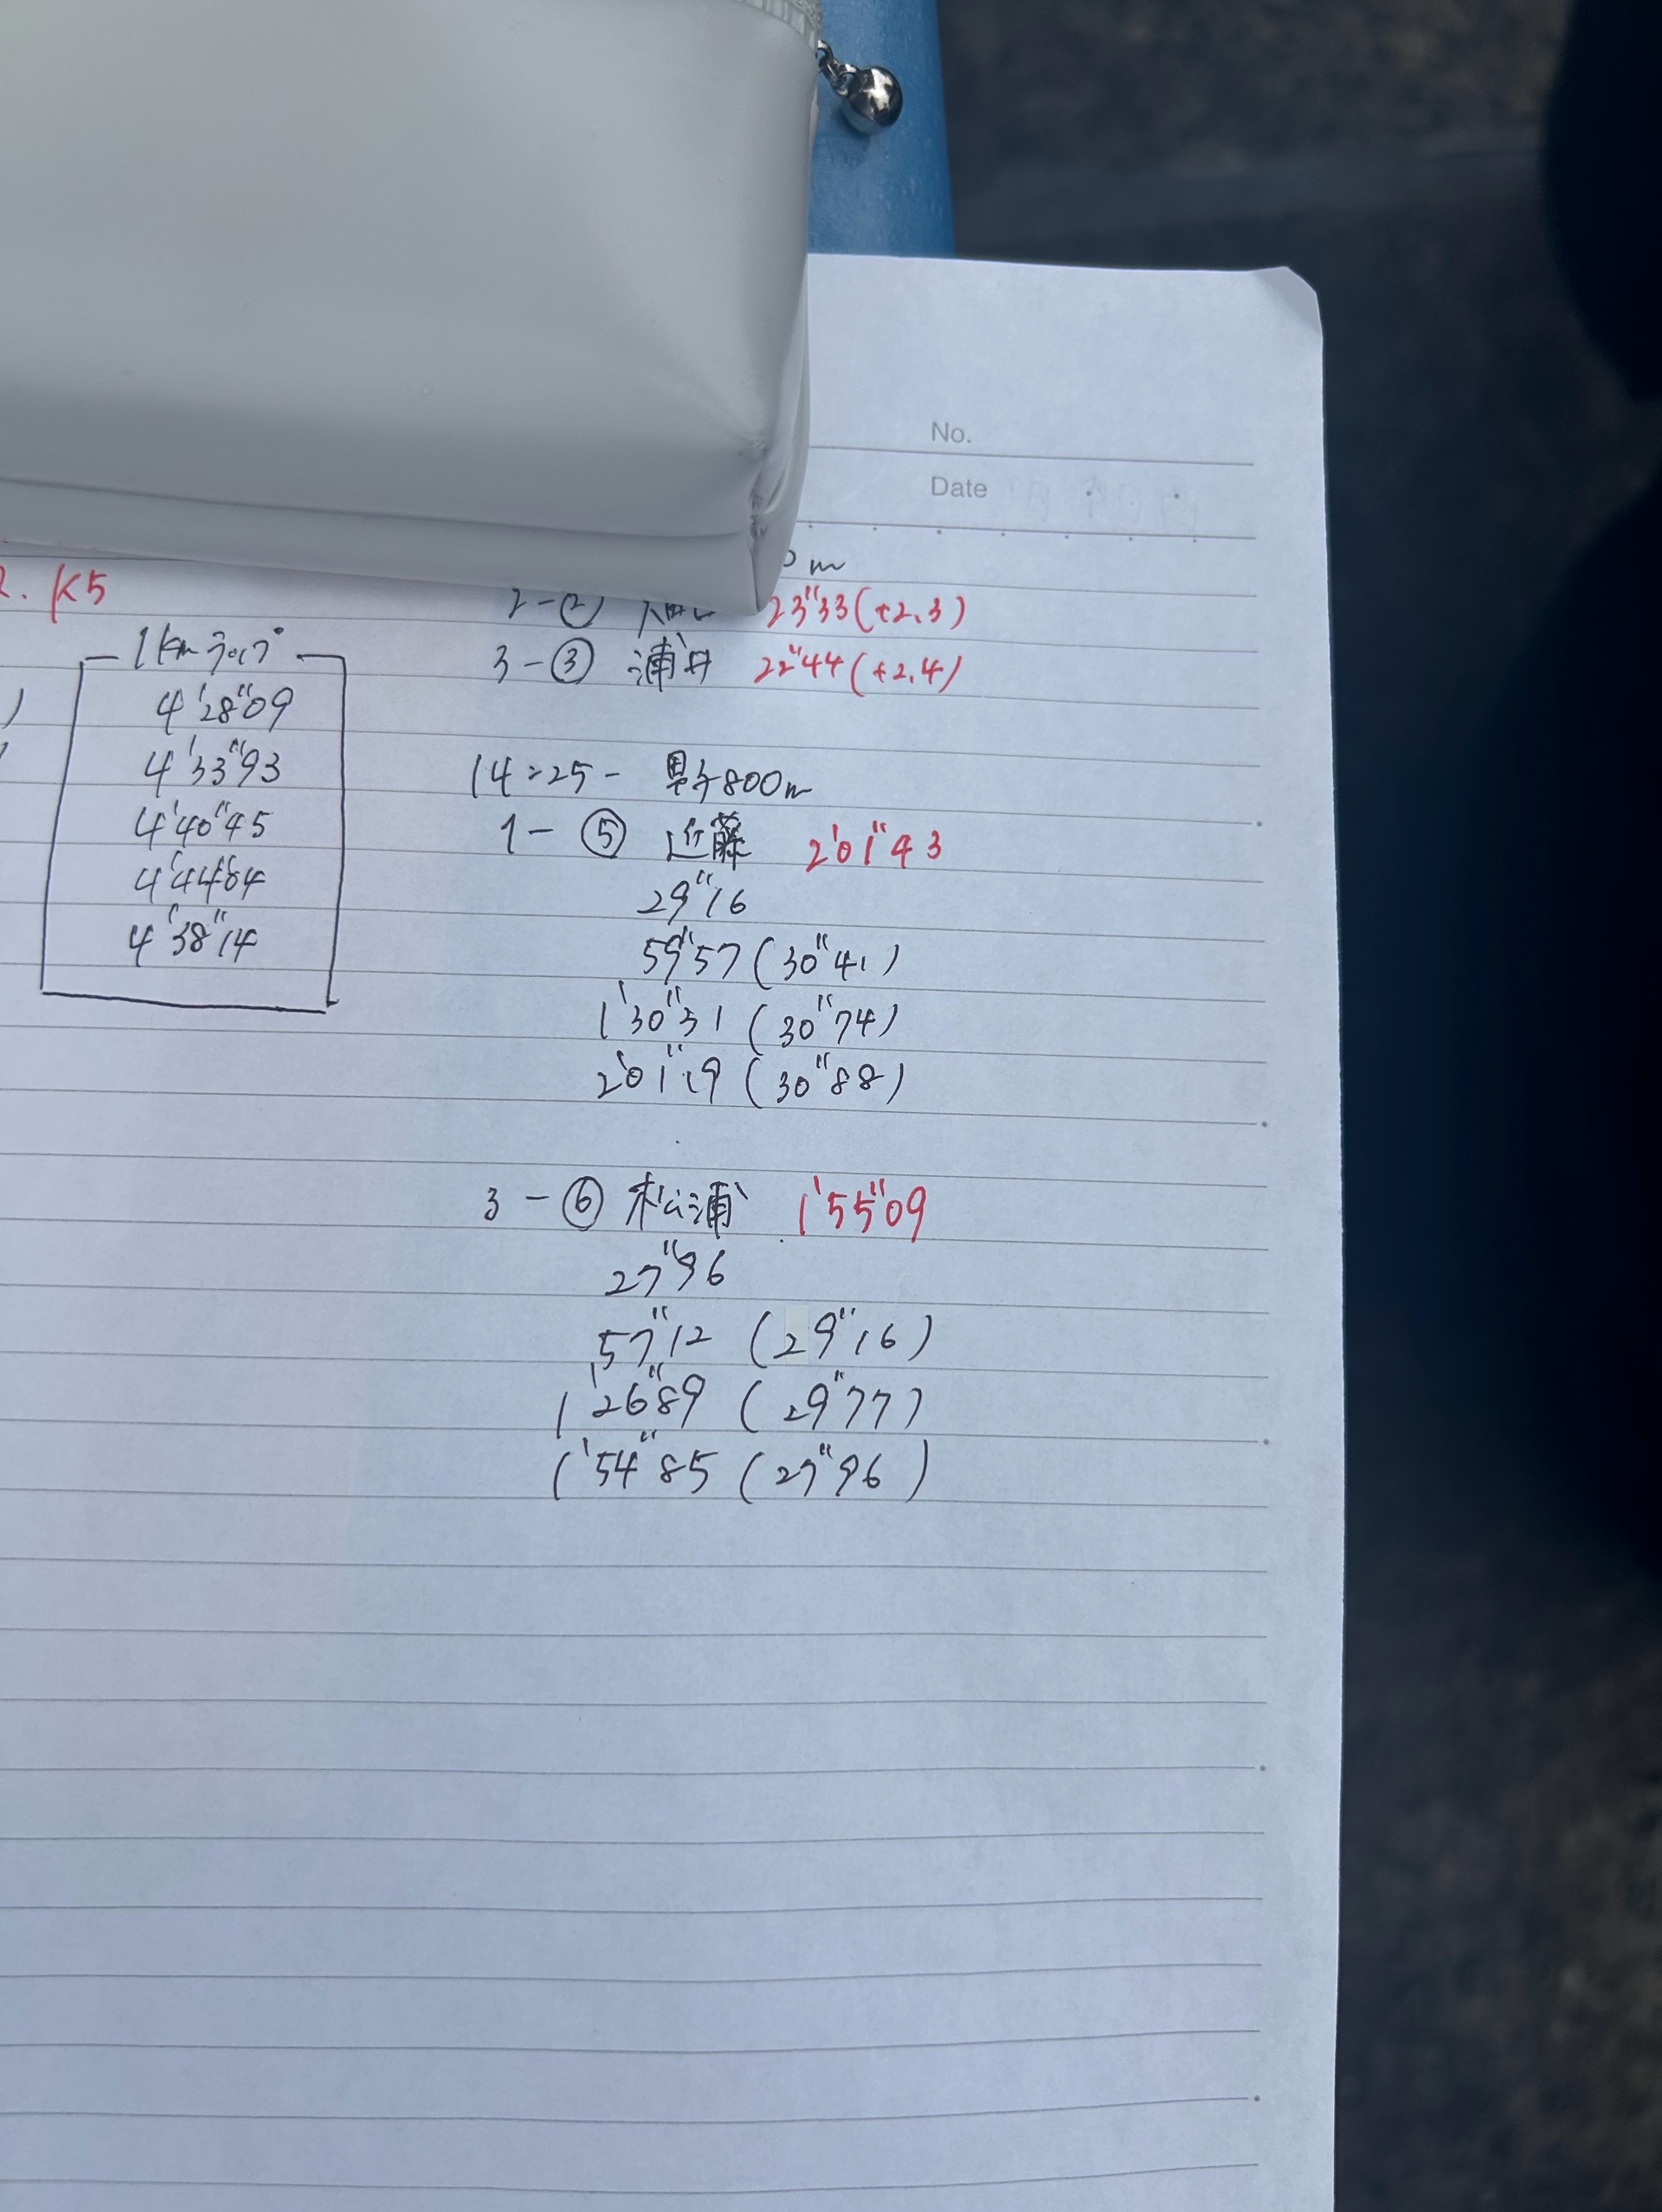 No.
Date
K5
1kmラップ
4'28"09
4'33"93
4'40"45
4'44"64
4'38"14
m
2-② 23"33(+2.3)
3-③ 浦井 22"44(+2.4)
14:25- 男子800m
1-⑤ 近藤 2'01"43
29"16
59"57(30"41)
1'30"31(30"74)
2'01"19(30"88)
3-⑥ 松浦 1'55"09
27"96
57"12(29"16)
1'26"89(29"77)
1'54"85(27"96)